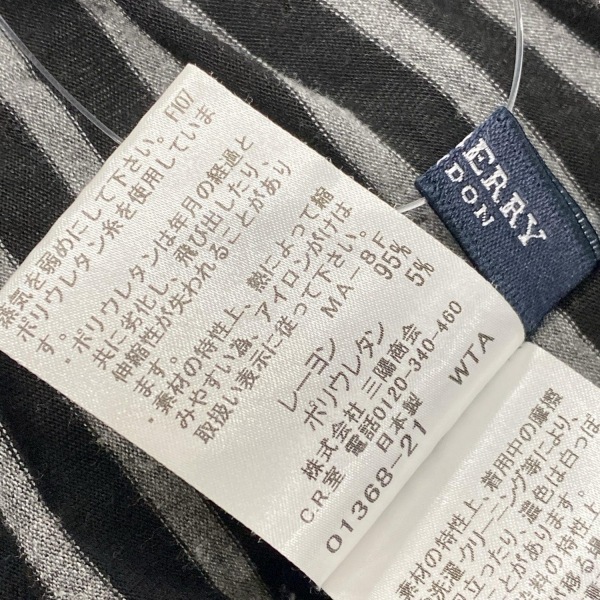 F107
蒸気を弱めにして下さい。
ポリウレタン糸を使用していま
す。
・ポリウレタンは年月の経過と
共に劣化し、飛び出したり、
伸縮性が失われることがあり
ます。
・素材の特性上、熱によって縮
みやすい為、アイロンがけは
取扱い表示に従って下さい。
MA-8F
レーヨン 95%
ポリウレタン 5%
株式会社 三陽商会
C.R室 電話0120-340-460
日本製
01368-21 WTA
ERRY
DON
素材の特性上、着用中の摩擦
洗濯・クリーニング等により、
目立ったり、濃色は白っぽ
ことがあります。
染料の特性上